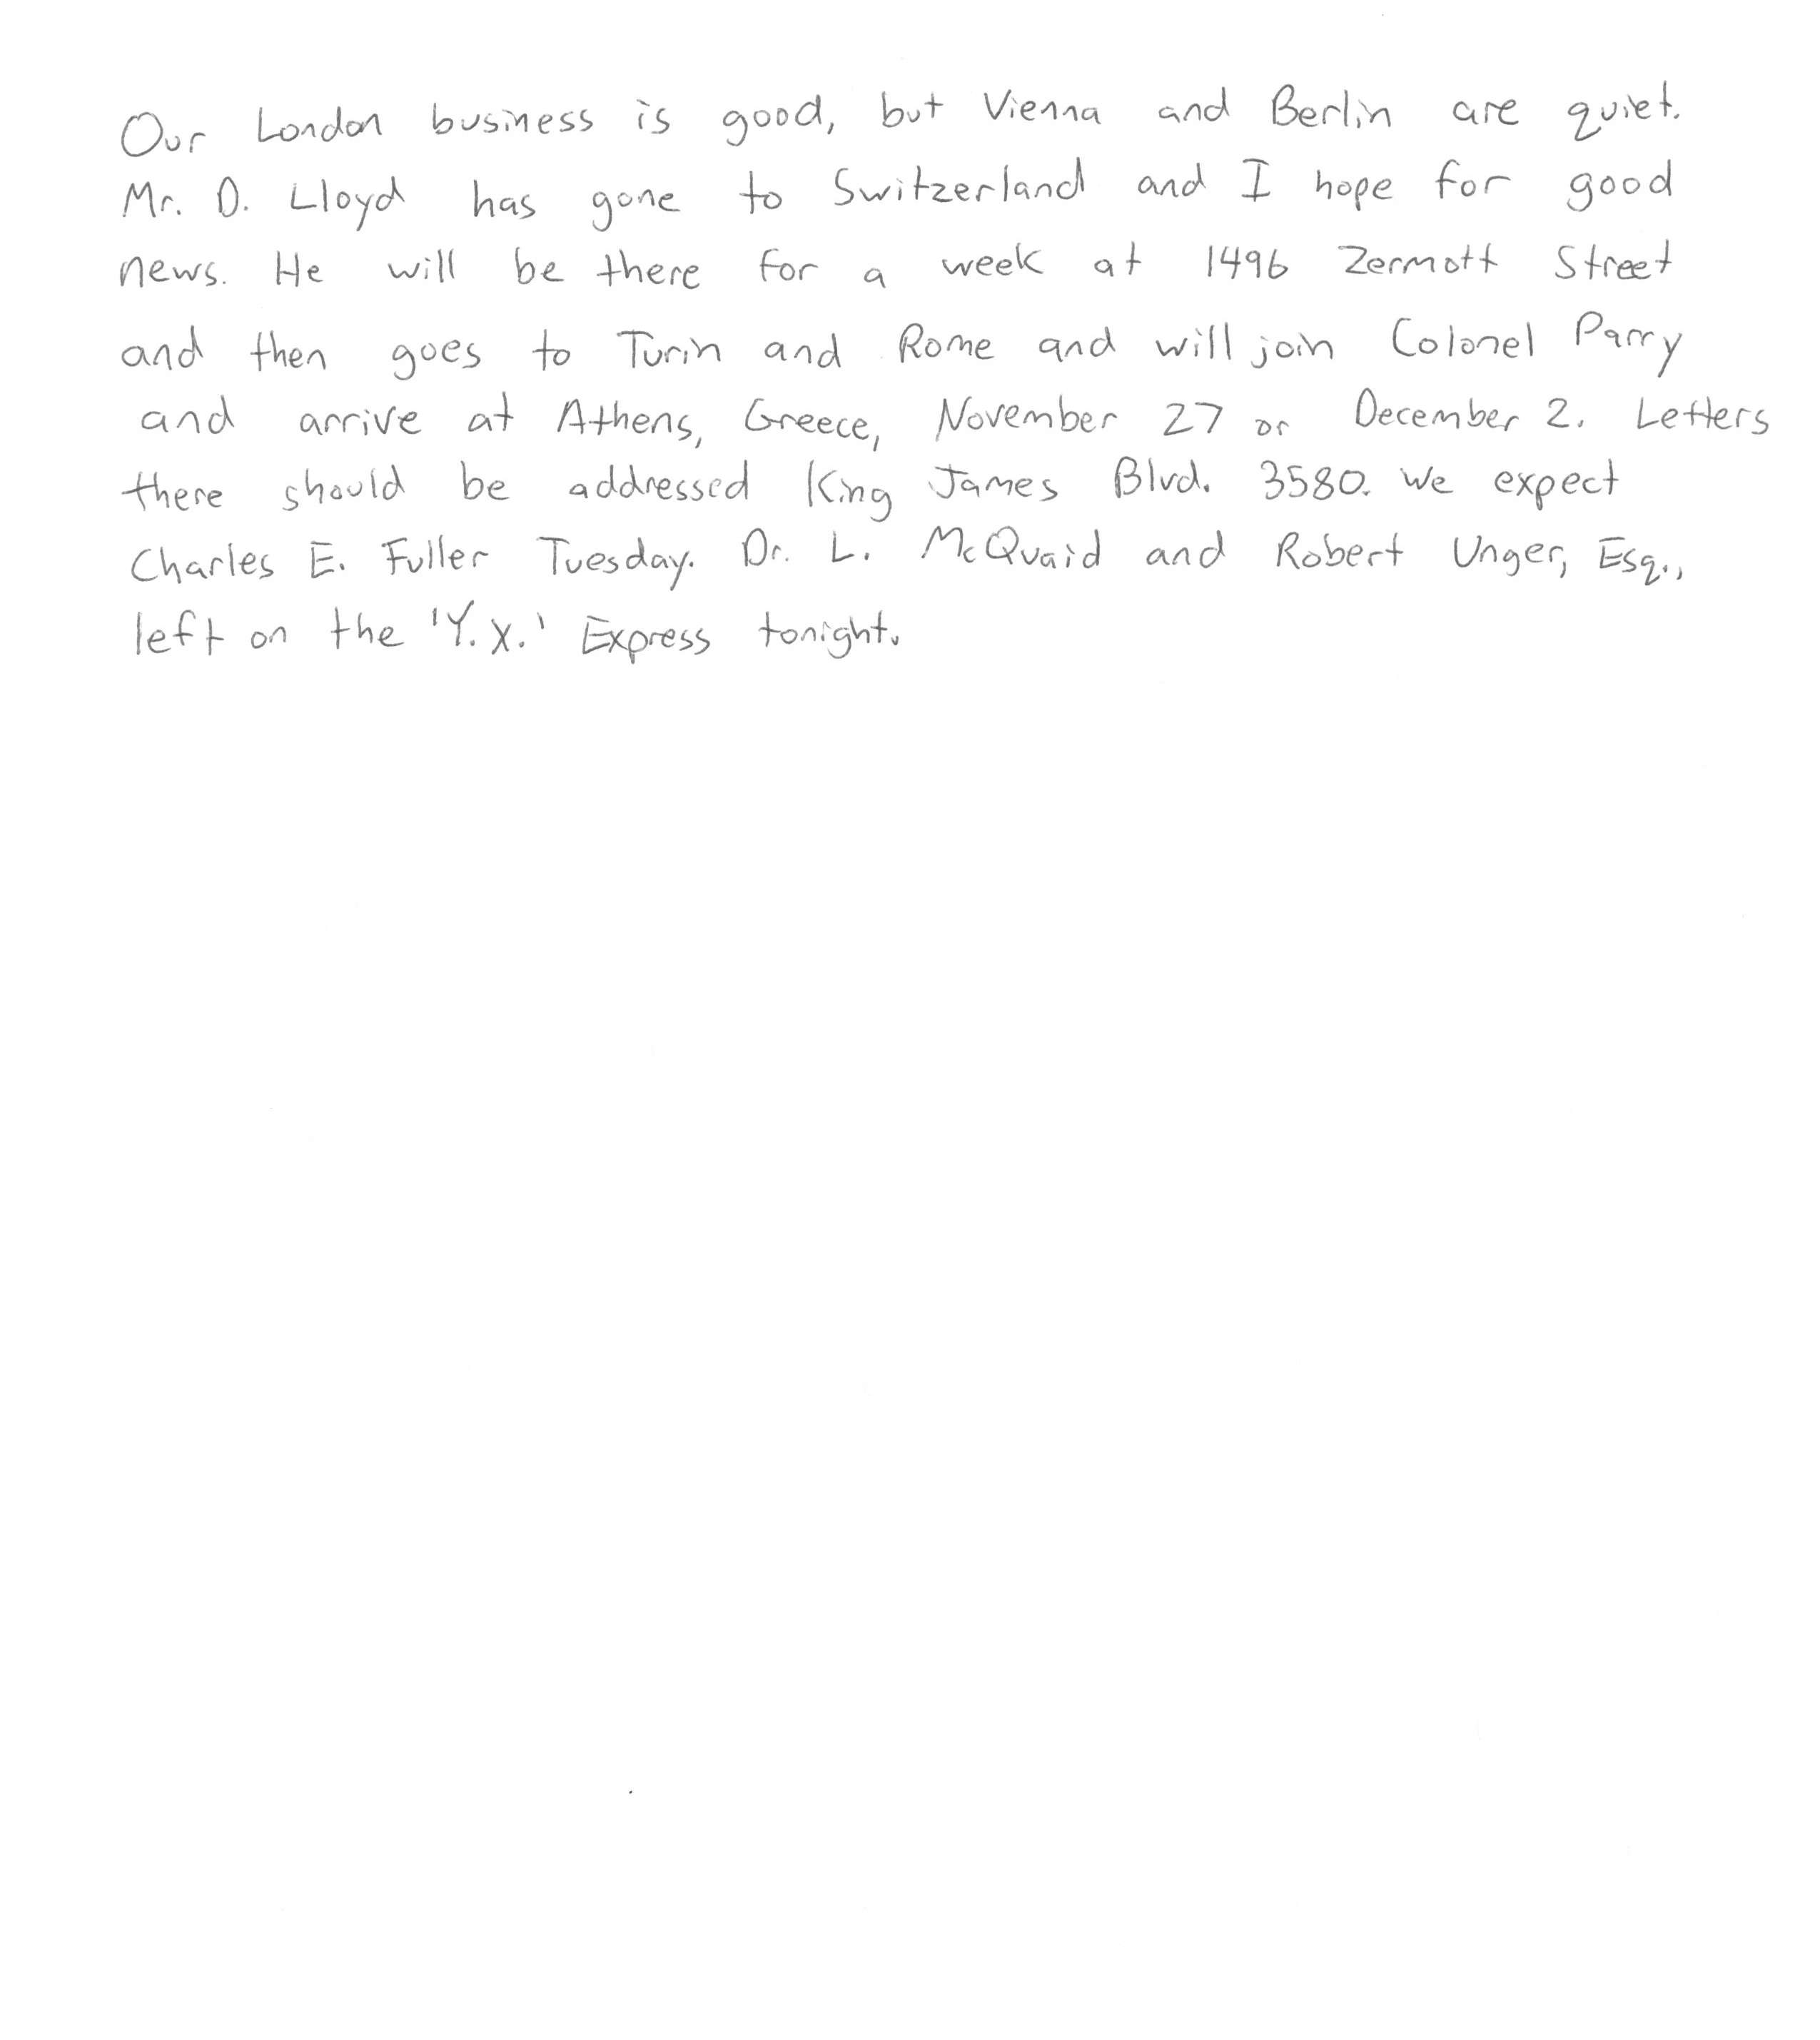 Our London business is good, but Vienna and Berlin are quiet.
Mr. D. Lloyd has gone to Switzerland and I hope for good
news. He will be there for a week at 1496 Zermott Street
and then goes to Turin and Rome and will join Colonel Parry
and arrive at Athens, Greece, November 27 or December 2. Letters
there should be addressed King James Blvd. 3580. We expect
Charles E. Fuller Tuesday. Dr. L. McQuaid and Robert Unger, Esq.,
left on the 'Y.X.' Express tonight.